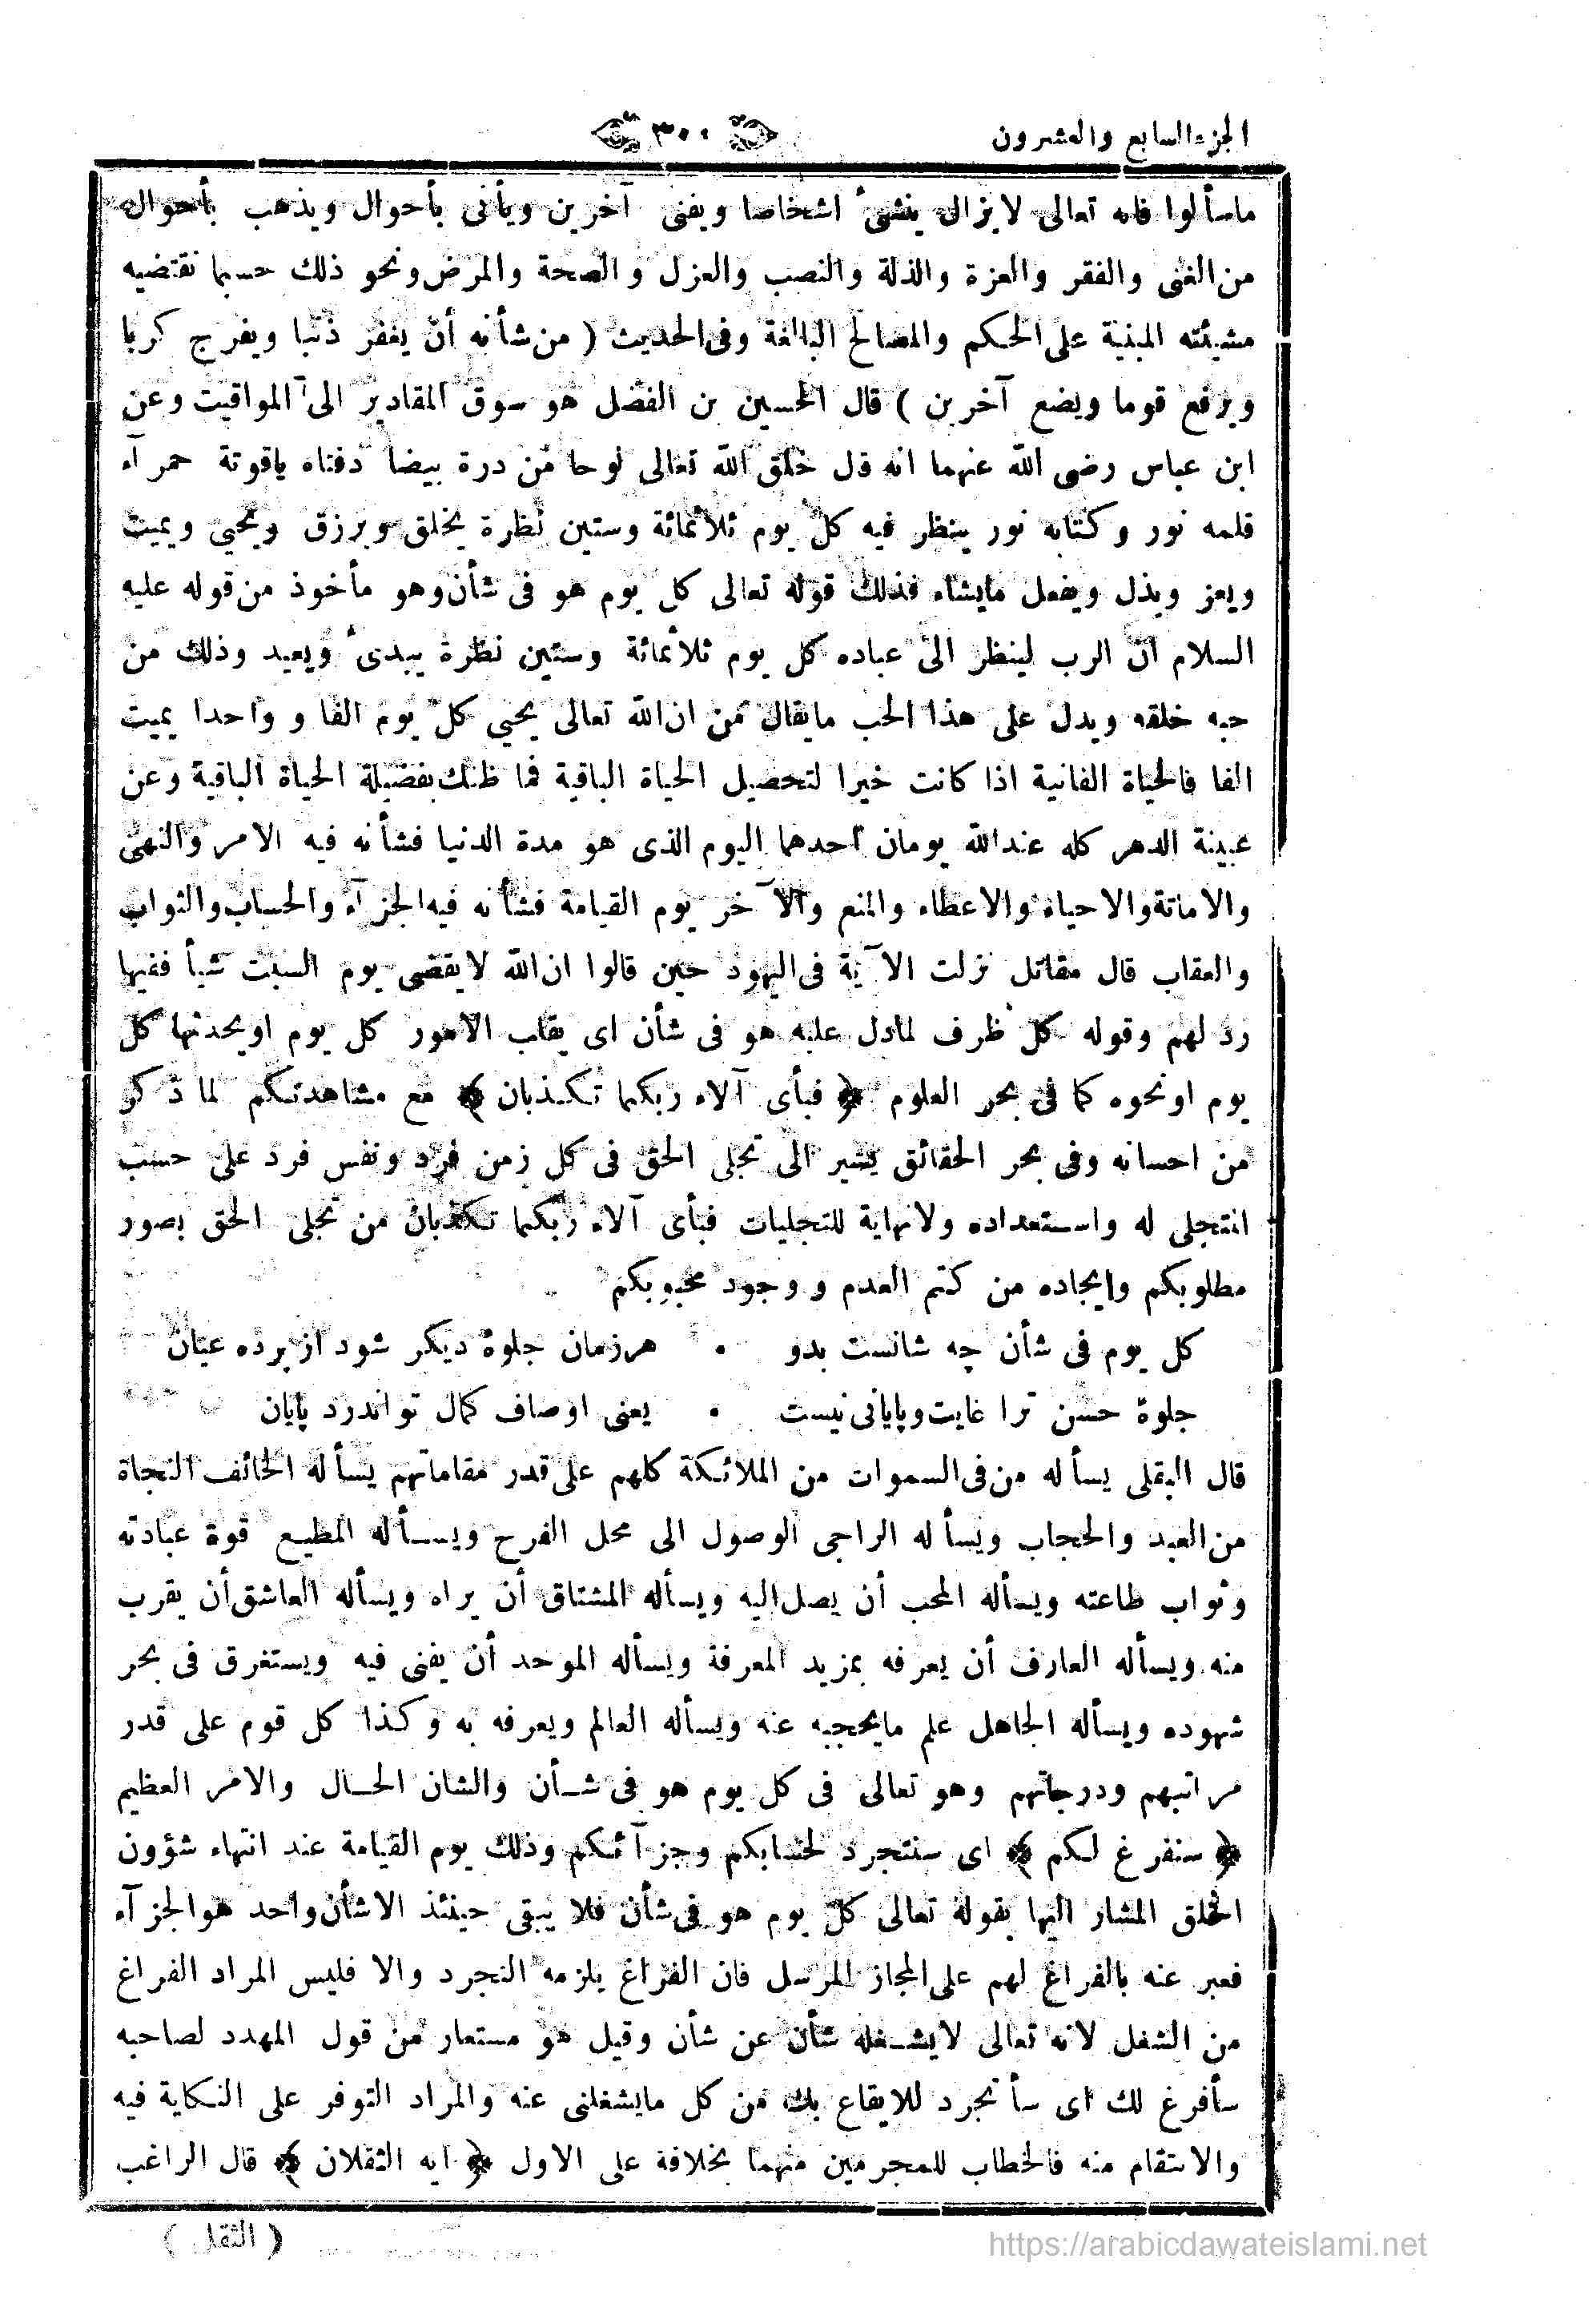 الجزء السابع والعشرون
٣٠٠
ماسألوا فانه تعالى لايزال ينشئ اشخاصا ويفنى آخرين ويأتى بأحوال ويذهب بأحوال
من الغنى والفقر والعزة والذلة والنصب والعزل والصحة والمرض ونحو ذلك حسبما تقتضيه
مشيئته المبنية على الحكم والمصالح البالغة وفى الحديث ( من شأنه أن يغفر ذنبا ويفرج كربا
ويرفع قوما ويضع آخرين ) قال الحسين بن الفضل هو سوق المقادير الى المواقيت وعن
ابن عباس رضى الله عنهما انه قال خلق الله تعالى لوحا من درة بيضا دفتاه ياقوتة حمرآء
قلمه نور وكتابه نور ينظر فيه كل يوم ثلاثمائة وستين نظرة يخلق ويرزق ويحيي ويميت
ويعز ويذل ويفعل مايشاء فذلك قوله تعالى كل يوم هو فى شأن وهو مأخوذ من قوله عليه
السلام ان الرب لينظر الى عباده كل يوم ثلاثمائة وستين نظرة يبدئ ويعيد وذلك من
حبه خلقه ويدل على هذا الحب مايقال من ان الله تعالى يحيي كل يوم الفا و واحدا يميت
الفا فالحياة الفانية اذا كانت خيرا لتحصيل الحياة الباقية فما ظنك بفضيلة الحياة الباقية وعن
عيينة الدهر كله عندالله يومان احدهما اليوم الذى هو مدة الدنيا فشأنه فيه الامر والنهى
والاماتة والاحياء والاعطاء والمنع والآخر يوم القيامة فشأنه فيه الجزآء والحساب والثواب
والعقاب قال مقاتل نزلت الآية فى اليهود حين قالوا ان الله لايقضى يوم السبت شيأ ففيها
رد لهم وقوله كل ظرف لمادل عليه هو فى شأن اى يقلب الامور كل يوم اويحدثها كل
يوم اونحوه كما فى بحر العلوم ﴿ فبأى آلاء ربكما تكذبان ﴾ مع مشاهدتكم لما ذكر
من احسانه وفى بحر الحقائق يشير الى تجلى الحق فى كل زمن فرد ونفس فرد على حسب
المتجلى له واستعداده ولانهاية للتجليات فبأى آلاء ربكما تكذبان من تجلى الحق بصور
مطلوبكم وايجاده من كتم العدم و وجود محبوبكم
كل يوم فى شأن چه شانست بدو • هرزمان جلوهٔ ديكر شود از پرده عيان
جلوهٔ حسن ترا غايت وپايانى نيست • يعنى اوصاف كمال تو اندرد پايان
قال البقلى يسأله من فى السموات من الملائكة كلهم على قدر مقاماتهم يسأله الخائف النجاة
من العبد والحجاب ويسأله الراجى الوصول الى محل الفرح ويسأله المطيع قوة عبادته
وثواب طاعته ويسأله المحب أن يصل اليه ويسأله المشتاق أن يراه ويسأله العاشق أن يقرب
منه ويسأله العارف أن يعرفه بمزيد المعرفة ويسأله الموحد أن يفنى فيه ويستغرق فى بحر
شهوده ويسأله الجاهل علم مايحجبه عنه ويسأله العالم ويعرفه به وكذا كل قوم على قدر
مراتبهم ودرجاتهم وهو تعالى فى كل يوم هو فى شأن والشان الحال والامر العظيم
﴿ سنفرغ لكم ﴾ اى سنتجرد لحسابكم وجزآئكم وذلك يوم القيامة عند انتهاء شؤون
الخلق المشار اليها بقوله تعالى كل يوم هو فى شأن فلا يبقى حينئذ الاشأن واحد هو الجزآء
فعبر عنه بالفراغ لهم على المجاز المرسل فان الفراغ يلزمه التجرد والا فليس المراد الفراغ
من الشغل لانه تعالى لايشغله شأن عن شأن وقيل هو مستعار من قول المهدد لصاحبه
سأفرغ لك اى سأتجرد للايقاع بك من كل مايشغلنى عنه والمراد التوفر على النكاية فيه
والانتقام منه فالخطاب للمجرمين منهما بخلافة على الاول ﴿ ايه الثقلان ﴾ قال الراغب
( الثقل )
https://arabicdawateislami.net